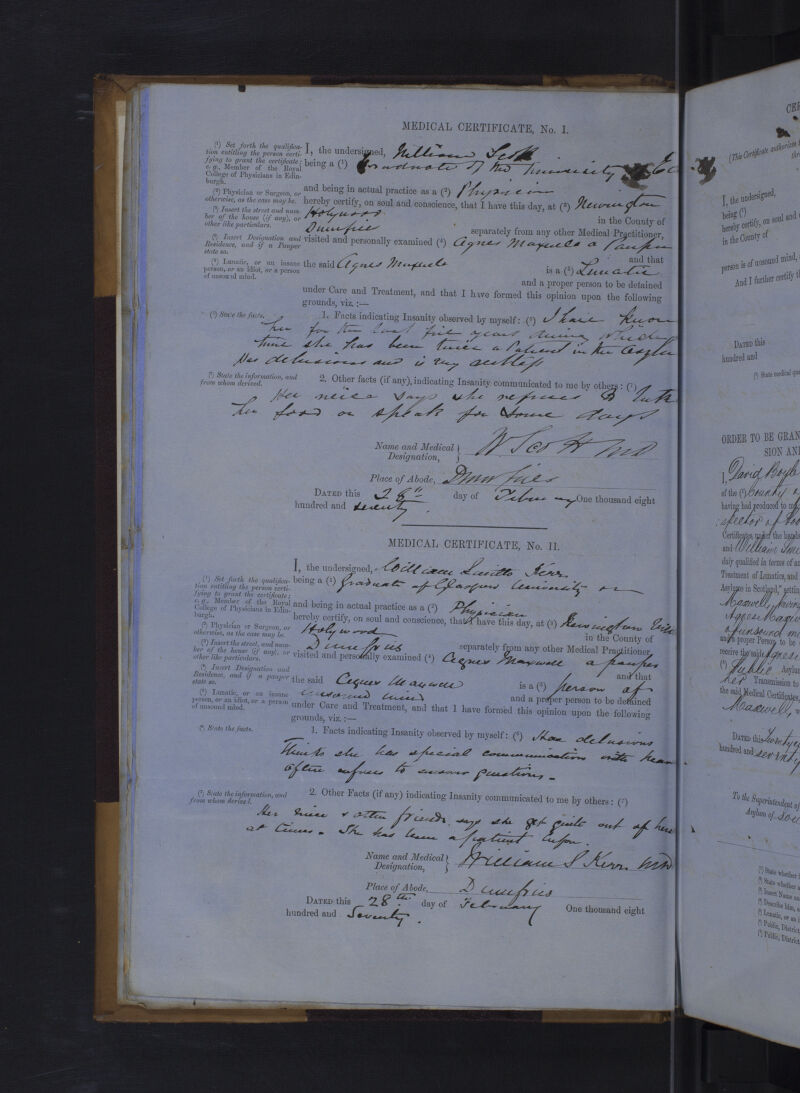 MEDICAL CERTIFICATE, No. I.
(¹) Set forth the qualification entitling the person certifying to grant the certificate; e.g., Member of the Royal College of Physicians in Edinburgh.
I, the undersigned, William Scott
being a (¹) Graduate of the University of
and being in actual practice as a (²) Physician
(²) Physician or Surgeon, or otherwise, as the case may be.
hereby certify, on soul and conscience, that I have this day, at (³) Newington
(³) Insert the street and number of the house (if any), or other like particulars.
Holywood in the County of
Dumfries separately from any other Medical Practitioner,
(⁴) Insert Designation and Residence, and if a Pauper state so.
visited and personally examined (⁴) Agnes Maxwell a Pauper
and that
(⁵) Lunatic, or an insane person, or an idiot, or a person of unsound mind.
the said Agnes Maxwell is a (⁵) Lunatic
and a proper person to be detained
under Care and Treatment, and that I have formed this opinion upon the following
grounds, viz.:—
(⁶) State the facts.
1. Facts indicating Insanity observed by myself: (⁶) I have known
her for the last five years during which
time she has been twice a Patient in the Asylum
Has delusions and is very restless
(⁷) State the information, and from whom derived.
2. Other facts (if any), indicating Insanity communicated to me by others: (⁷)
Her neice says she refuses to take
her food or speak for some days
Name and Medical Designation, W Scott MD
Place of Abode, Dumfries
DATED this 28th day of February One thousand eight
hundred and seventy.
MEDICAL CERTIFICATE, No. II.
(¹) Set forth the qualification entitling the person certifying to grant the certificate; e.g., Member of the Royal College of Physicians in Edinburgh.
I, the undersigned, William Smith Kerr
being a (¹) Graduate of Glasgow University
and being in actual practice as a (²) Physician
(²) Physician or Surgeon, or otherwise, as the case may be.
hereby certify, on soul and conscience, that I have this day, at (³)
(³) Insert the street, and number of the house (if any), or other like particulars.
Holywood in the County of
Dumfries separately from any other Medical Practitioner,
(⁴) Insert Designation and Residence, and if a pauper state so.
visited and personally examined (⁴) Agnes Maxwell a pauper
and that
(⁵) Lunatic, or an insane person, or an idiot, or a person of unsound mind.
the said Agnes Maxwell is a (⁵) person of
unsound mind and a proper person to be detained
under Care and Treatment, and that I have formed this opinion upon the following
grounds, viz.:—
(⁶) State the facts.
1. Facts indicating Insanity observed by myself: (⁶) Has delusions
Thinks she has special communication with
often refuses to answer questions.
(⁷) State the information, and from whom derived.
2. Other Facts (if any) indicating Insanity communicated to me by others: (⁷)
Her niece & other friends says she get quite out of
at times. She has been a patient before.
Name and Medical Designation, William S Kerr MD
Place of Abode, Dumfries
DATED this 28th day of February One thousand eight
hundred and Seventy.
(This Certificate authorises
I, the undersigned,
being (¹)
hereby certify, on soul and
in the County of
person is of unsound mind,
And I further certify
DATED this
hundred and
(¹) State medical
ORDER TO BE
I, David Boyle
of the (¹) County of
having had produced to
Certificates under the hands
and William
duly qualified in terms of
Treatment of Lunatics, and
Asylums in Scotland,"
Maxwell,
of unsound
and proper Person to be
receive the said Agnes
Asylum
her Transmission to
the said Medical Certificates,
Maxwell,
DATED this twenty
hundred and seventy
To the Superintendent of
Asylum of